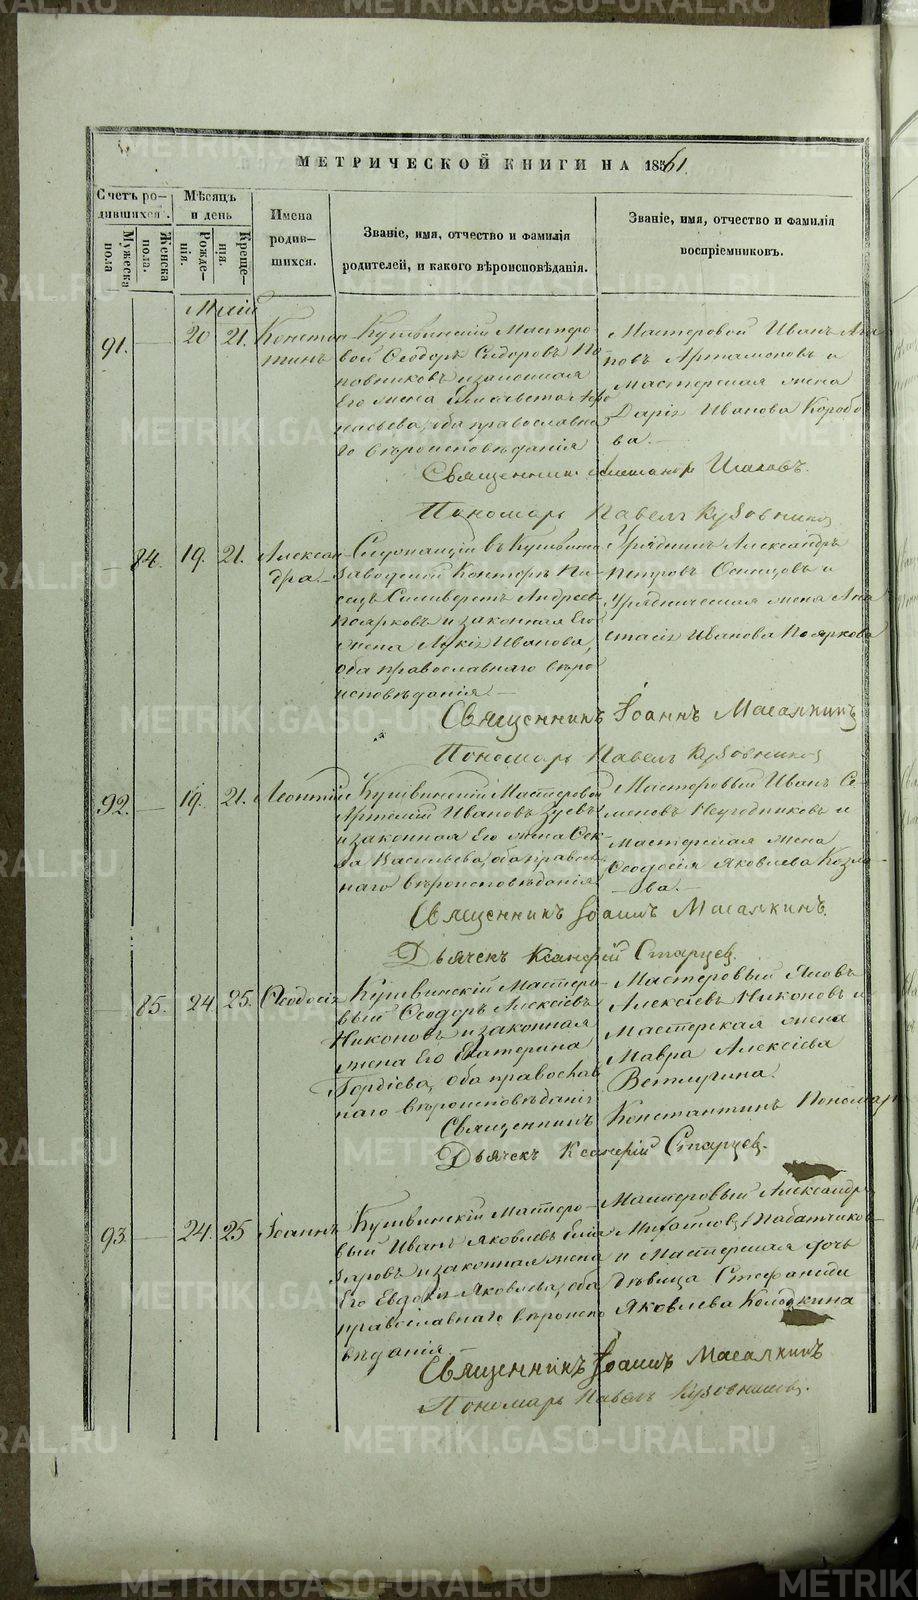 МЕТРИЧЕСКОЙ КНИГИ НА 1861.
Счетъ ро-
дившихся.
Мѣсяцъ
и день
Имена
родив-
шихся.
Званіе, имя, отчество и фамилія
родителей, и какого вѣроисповѣданія.
Званіе, имя, отчество и фамилія
воспріемниковъ.
Мужеска
пола
Женска
пола.
Рожде-
нія.
Креще-
нія.
Маій
91. — 20 21. Констан-
тинъ
Кушвинскій Мастеро-
вой Ѳеодоръ Сидоровъ По-
повниковъ и законная
Его жена Елисавета
оба православна
го вѣроисповѣданія
Мастеровой Иванъ
повъ Артамоновъ и
Мастерская жена
Дарія Иванова Коробо
ва.—
Священник Александр
Пономарь Павелъ Кузовников
— 84. 19. 21. Алексан-
дра.—
Служащій въ Кушвинс
Заводской Конторѣ Пи-
сецъ Силиверстъ Андреев
Поярковъ и законная Его
жена Иванова,
оба православнаго вѣро
исповѣданія.—
Урядникъ Александръ
Петровъ и
Урядническая жена Ана
стасія Иванова Пояркова
Священникъ Іоаннъ Масалкинъ
Пономарь Павелъ Кузовников
92. — 19. 21. Леонтій
Кушвинскій Мастеровой
Иванов Зуевъ
и законная Его жена Ѳек-
ла Васильева, оба правосл
наго вѣроисповѣданія
Мастеровый Иванъ Се
меновъ Неугодниковъ и
Мастерская жена
Ѳеодосія Яковлева Козло
— ва.—
Священникъ Іоаннъ Масалкинъ.
Дьячекъ Ксанфій Старцев.
— 85. 24. 25. Ѳеодосія
Кушвинскій Мастеро-
вый Ѳеодоръ Алексіевъ
Никоновъ и законная
жена Его Екатерина
Гордіева, оба православ
наго вѣроисповѣданія
Мастеровый Яковъ
Алексіевъ Никоновъ и
Мастерская жена
Мавра Алексіева
Ветлугина.
Священникъ Константинъ Пономар
Дьячекъ Ксанфій Старцев.
93. — 24. 25 Іоаннъ
Кушвинскій Мастеро-
вый Иванъ Яковлевъ Елиз
заровъ и законная жена
Его Евдокія Яковлева, оба
православнаго вѣроиспо
вѣданія.—
Мастеровый Александръ
Михайловъ Лабатчиков
и Мастерская дочь
Дѣвица Стефанида
Яковлева Колодкина
Священникъ Іоаннъ Масалкинъ.
Пономарь Павелъ Кузовников.
METRIKI.GASO-URAL.RU